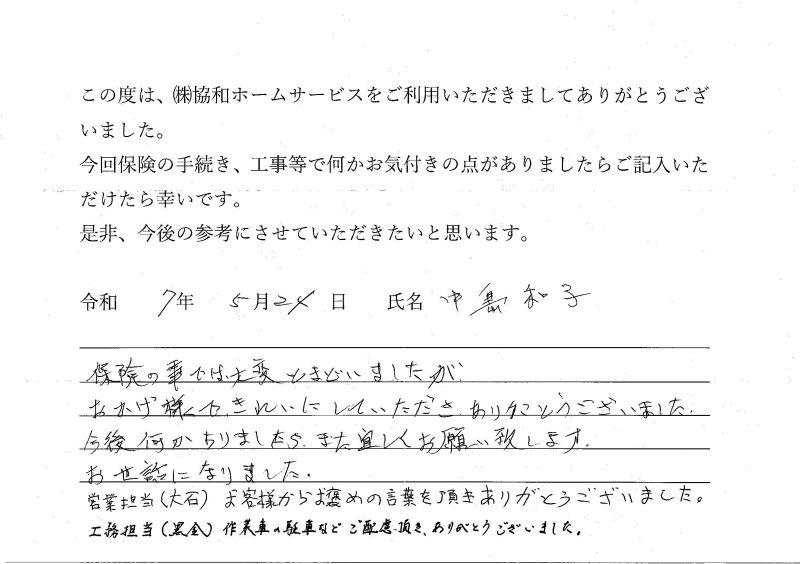 この度は、㈱協和ホームサービスをご利用いただきましてありがとうござ
いました。
今回保険の手続き、工事等で何かお気付きの点がありましたらご記入いた
だけたら幸いです。
是非、今後の参考にさせていただきたいと思います。
令和 7年 5月24日 氏名 中島 和子
保険の事では大変とまどいましたが、
おかげ様で、きれいにしていただき、ありがとうございました。
今後何かありましたら、また宜しくお願い致します。
お世話になりました。
営業担当(大石) お客様からお褒めの言葉を頂きありがとうございました。
工務担当(黒金) 作業車の駐車など ご配慮頂き、ありがとうございました。